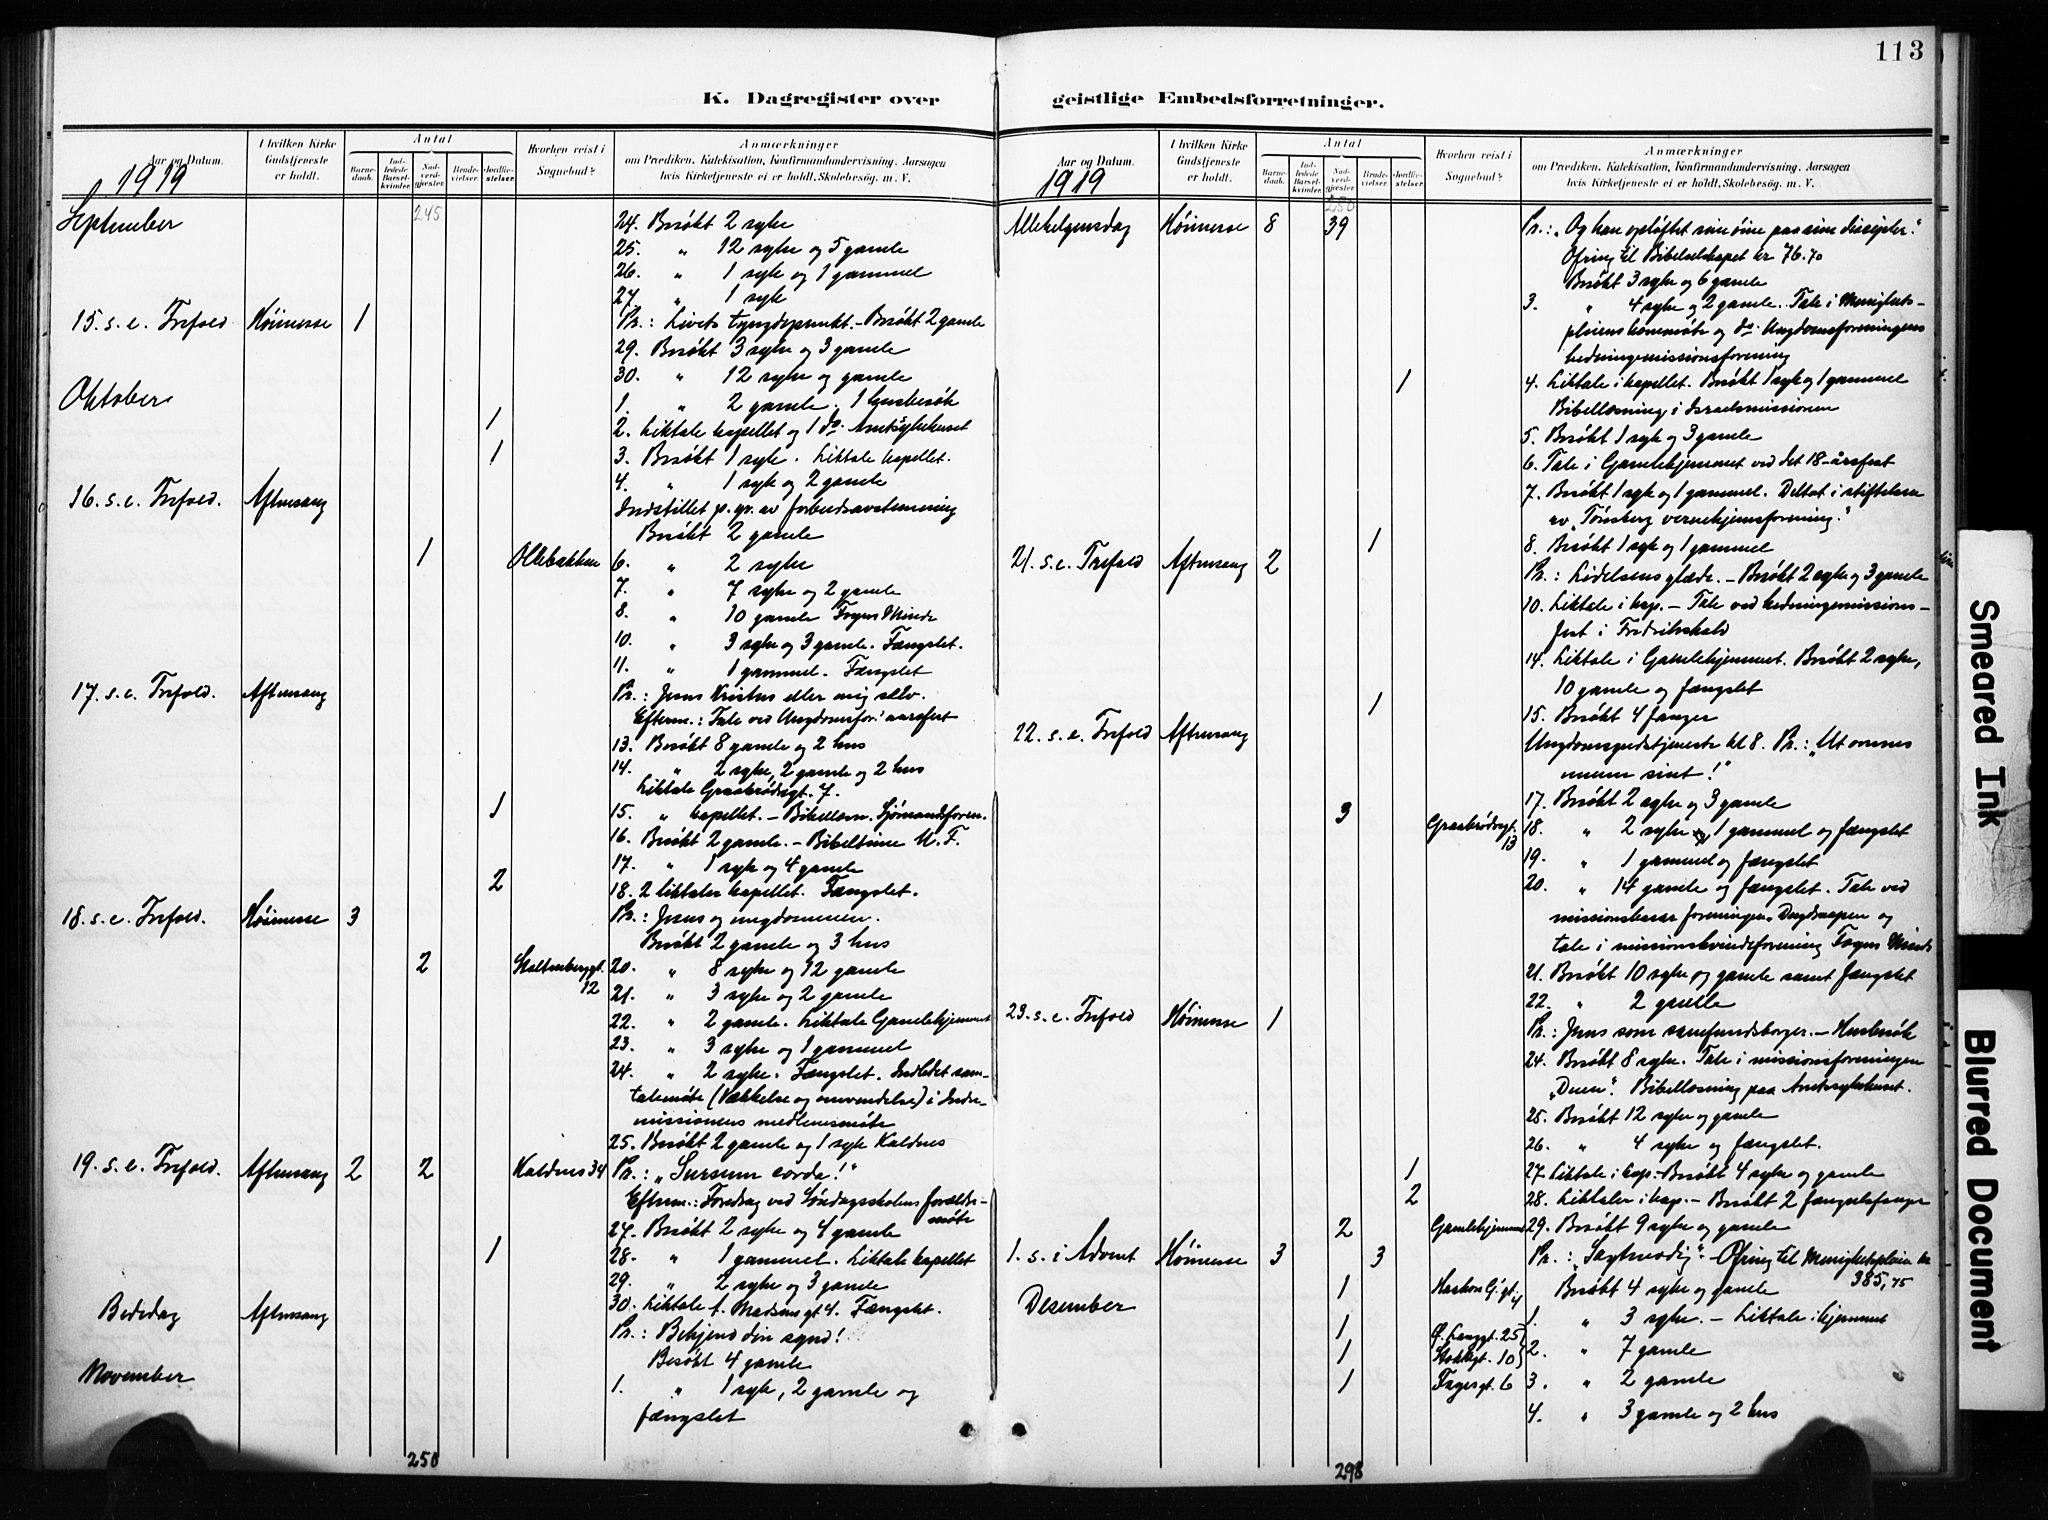 113
K. Dagregister over
geistlige Embedsforretninger.
Aar og Datum.
1919
I hvilken Kirke Gudstjeneste er holdt.
Antal
Barnedaab.
Indledede Barselkvinder.
Nadverdgjester.
Brudevielser.
Jordfæstelser.
Hvorhen reist i Sognebud?
Anmærkninger
om Prædiken, Katekisation, Konfirmandundervisning. Aarsagen
hvis Kirketjeneste ei er holdt, Skolebesøg. m. V.
September 245 24. Besøkt 2 syke
25. " 12 syke og 5 gamle
26. " 1 syk og 1 gammel
27. " 1 syk
15. s. e. Trefold Høimesse 1 Pr.: Livets tyngdepunkt. - Besøkt 2 gamle
29. Besøkt 3 syke og 3 gamle
30. " 12 syke og gamle
Oktober 1. " 2 gamle. 1 husbesøk
1 2. Liktale kapellet og 1 do. Amtsykehuset
1 3. Besøkt 1 syk. Liktale kapellet.
4. " 1 syk og 2 gamle
16. s. e. Trefold. Aftensang Indstillet p. gr. av forbudsavstemning
Besøkt 2 gamle
1 Ollebakken 6. " 2 syke
7. " 7 syke og 2 gamle
8. " 10 gamle Foyns Minde
10. " 3 syke og 3 gamle. Fængslet.
11. " 1 gammel. Fængslet
17. s. e. Trefold. Aftensang Pr.: Jesus Kristus eller mig selv.
Efterm.: Tale ved Ungdomsfor. aarsfest
13. Besøkt 8 gamle og 2 hus
14. " 2 syke, 2 gamle og 2 hus
Liktale Graabrødregt. 7.
1 15. " kapellet. - Bibellæsn. Sjømandsforen.
16. Besøkt 2 gamle. - Bibeltime U. F.
17. " 1 syk og 4 gamle
2 18. 2 liktaler kapellet. Fængslet.
18. s. e. Trefold. Høimesse 3 Pr.: Jesus og ungdommen.
Besøkt 2 gamle og 3 hus
2 Stoltenberggt. 12 20. " 8 syke og 12 gamle
21. " 3 syke og 2 gamle
22. " 2 gamle. Liktale Gamlehjemmet
23. " 3 syke og 1 gammel
24. " 2 syke. Fængslet. Indledet sam-
talemøte (Vækkelse og omvendelse) i Indre-
missionens medlemsmøte
25. Besøkt 2 gamle og 1 syk Kaldnes
19. s. e. Trefold. Aftensang 2 2 Kaldnes 34 Pr.: „Sursum corda!"
Efterm.: Foredrag ved Søndagsskolens forældre-
møte
27. Besøkt 2 syke og 4 gamle
1 28. " 1 gammel. Liktale kapellet
29. " 2 syke og 3 gamle
30. Liktale f. Madsens gt. 4. Fængslet.
Bededag Aftensang Pr.: Bekjend din synd!
Besøkt 4 gamle
November 1. " 1 syk, 2 gamle og
fængslet
250
Aar og Datum.
1919
I hvilken Kirke Gudstjeneste er holdt.
Antal
Barnedaab.
Indledede Barselkvinder.
Nadverdgjester.
Brudevielser.
Jordfæstelser.
Hvorhen reist i Sognebud?
Anmærkninger
om Prædiken, Katekisation, Konfirmandundervisning. Aarsagen
hvis Kirketjeneste ei er holdt, Skolebesøg. m. V.
250
Allehelgensdag Høimesse 8 39 Pr.: „Og han opløftet sine øine paa sine disciple."
Ofring til Bibelselskapet kr 76.70
Besøkt 3 syke og 6 gamle
3. " 4 syke og 2 gamle. Tale i Menighets-
pleiens kommøte og do. Ungdomsforeningens
hedningemissionsforening
1 4. Liktale i kapellet. Besøkt 1 syk og 1 gammel
Bibellæsning i Israelsmissionen
5. Besøkt 1 syk og 3 gamle
6. Tale i Gamlehjemmet ved det 18-årsfest
7. Besøkt 1 syk og 1 gammel. Deltat i stiftelsen
av „Tønsberg vernehjemsforening."
1 8. Besøkt 1 syk og 1 gammel
21. s. e. Trefold Aftensang 2 Pr.: Lidelsens glæde. - Besøkt 2 syke og 3 gamle
10. Liktale i kap. - Tale ved hedningemissions-
fest i Fredrikshald
14. Liktale i Gamlehjemmet. Besøkt 2 syke,
10 gamle og fængslet
1 15. Besøkt 4 fanger
22. s. e. Trefold Aftensang Ungdomsgudstjeneste kl 8. Pr.: „Ut omnes
unum sint!"
17. Besøkt 2 syke og 3 gamle
3 Graabrødregt. 13 18. " 2 syke og 1 gammel og fængslet
19. " 1 gammel og fængslet
20. " 14 gamle og fængslet. Tale ved
missionsbasar foreningen „Dugdraapen og
tale i missionskvindeforening Foyns Minde
21. Besøkt 10 syke og gamle samt fængslet
22. " 2 gamle
23. s. e. Trefold Høimesse 1 Pr.: Jesus som samfundsborger. - Husbesøk
24. Besøkt 8 syke. Tale i missionsforeningen
„Duen". Bibellæsning paa Amtssykehuset.
25. Besøkt 12 syke og gamle
26. " 4 syke og fængslet.
1 27. Liktale i kap. - Besøkt 4 syke og gamle
2 28. Liktaler i kap. - Besøkt 2 fængselsfanger
2 Gamlehjemmet 29. Besøkt 9 syke og gamle
1. s. i Advent Høimesse 3 3 Pr.: „Sagtmodig" - Ofring til Menighetspleien kr
385,75
1 Haakon G. gt. 4 Besøkt 4 syke og gamle
Desember 1. " 3 syke. - Liktale i hjemmet
1 Ø. Langgt. 25
1 Stokkegt. 10 2. " 7 gamle
1 Fayesgt. 6 3. " 2 gamle
4. " 3 gamle og 2 hus
298
Smeared Ink
Blurred Document